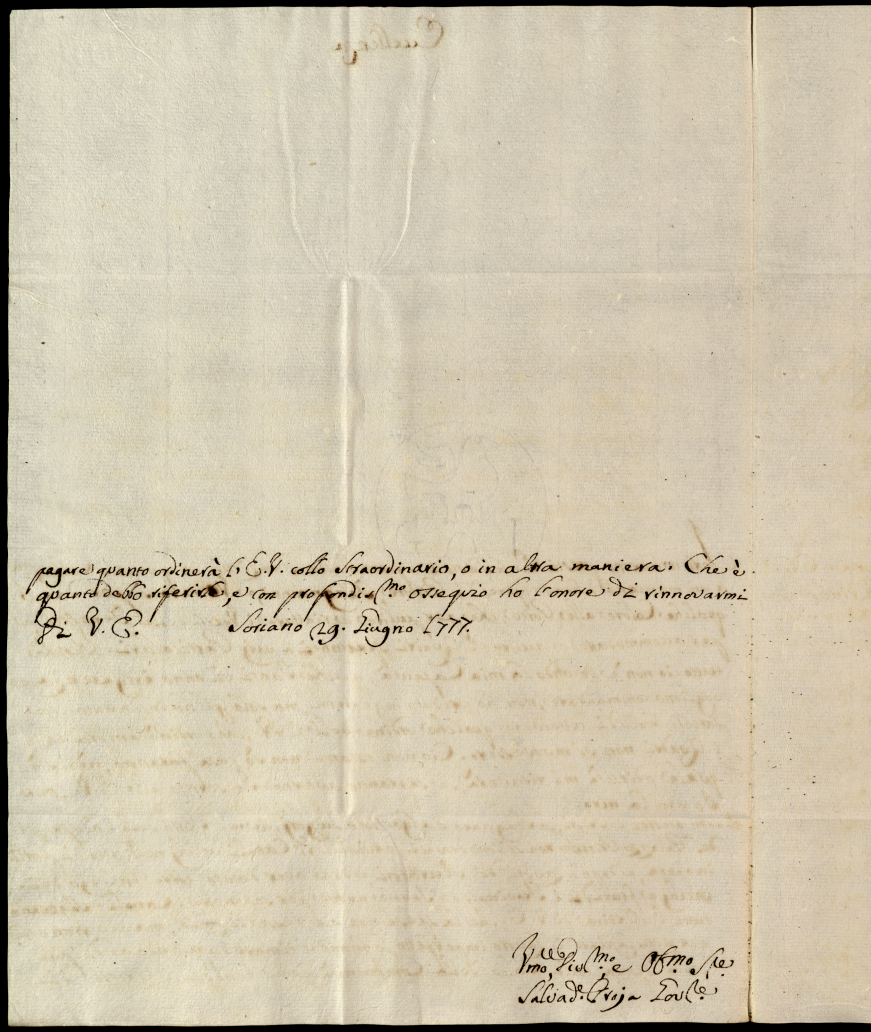 pagare quanto ordinerà l'E.V. collo Straordinario, o in altra maniera. Che è
quanto debbo riferirle, e con profondis.mo ossequio ho l'onore di rinnovarmi
Di V. E. Soriano 29. Giugno 1777.
Umo, Divmo, e Obmo Sre
Salvad.e Troja Gov.re